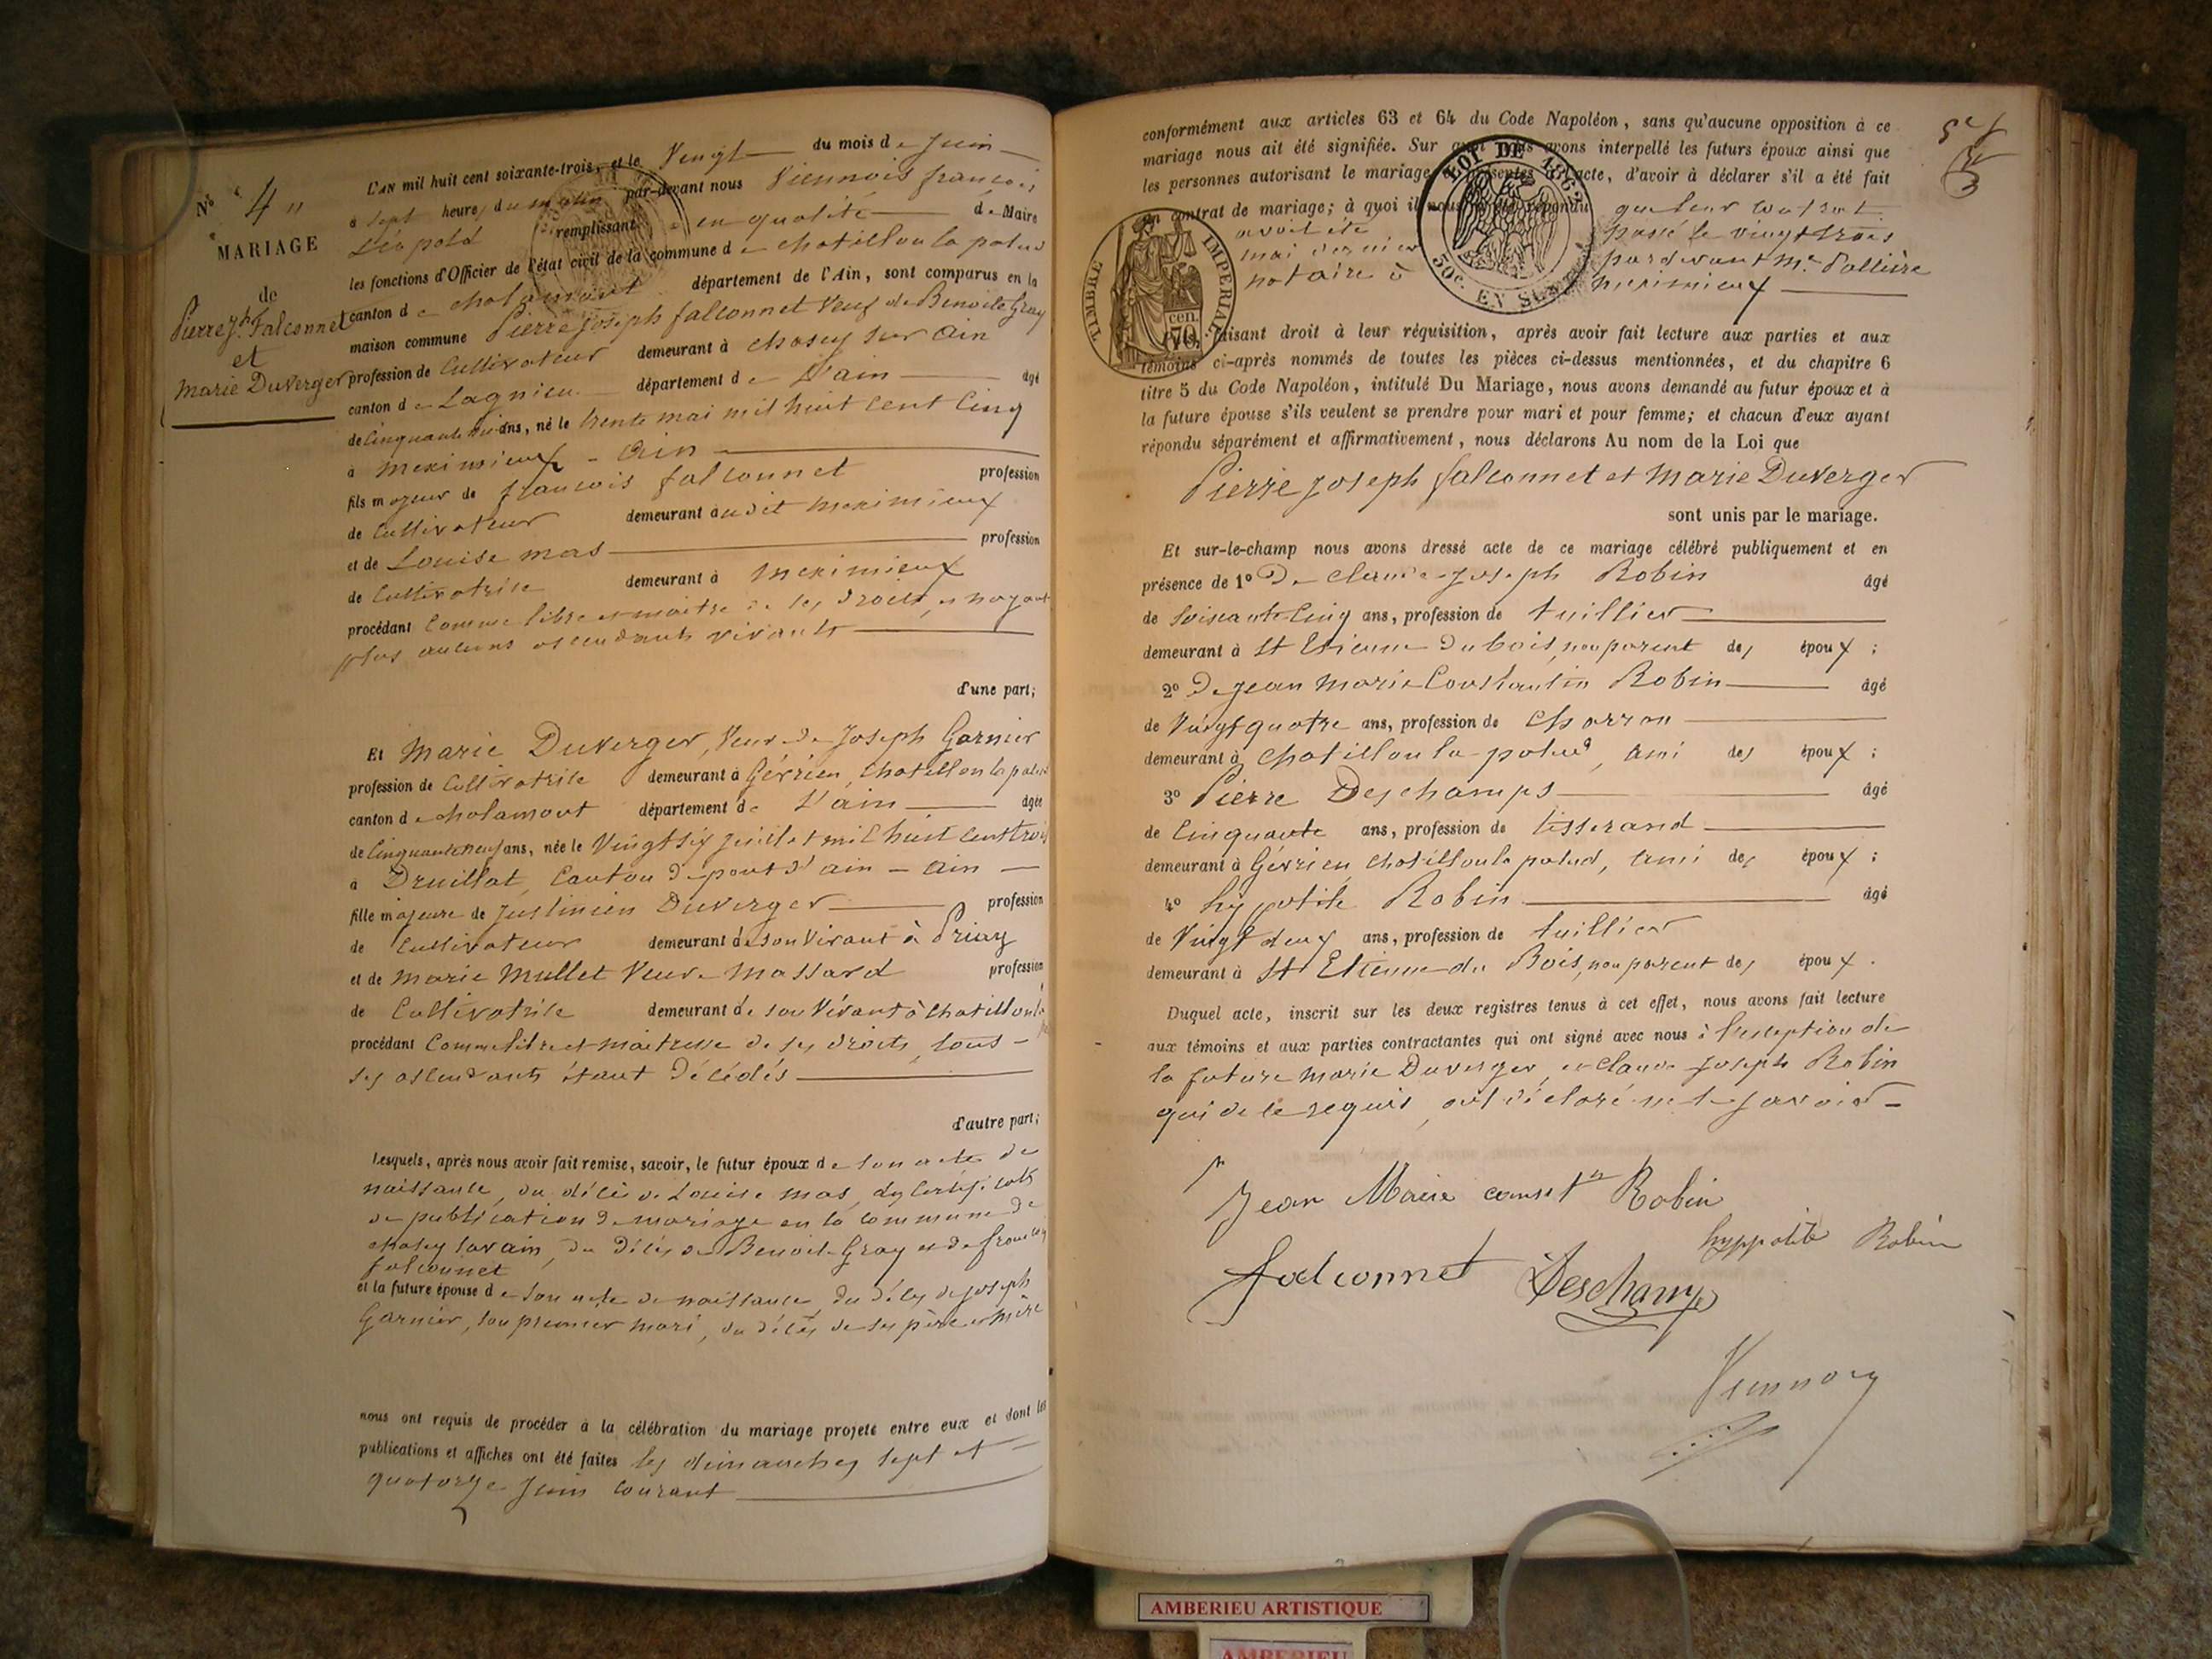 Nº 4
MARIAGE
de
Pierre Jh. Falconnet
et
Marie Duverger
L'AN mil huit cent soixante-trois, et le Vingt du mois de Juin
à sept heures du matin par-devant nous Viennois françois
Léopold remplissant en qualité de Maire
les fonctions d'Officier de l'état civil de la commune de chatillon la palud
canton de chalamont département de l'Ain, sont comparus en la
maison commune Pierre joseph falconnet Veuf de Benoite Gray
profession de Cultivateur demeurant à chasey sur Ain
canton de Lagnieu département de L'ain âgé
de Cinquante huit ans, né le trente mai mil huit cent Cinq
à meximieux - Ain
fils majeur de françois falconnet profession
de Cultivateur demeurant audit meximieux
et de Louise mas profession
de Cultivatrice demeurant à meximieux
procédant Comme libre et maitre de ses droits, n'ayant
plus aucuns ascendants vivants
d'une part;
Et Marie Duverger, Veuve de Joseph Garnier
profession de Cultivatrice demeurant à Gévrieu, chatillon la palud
canton de chalamont département de L'ain âgée
de Cinquante neuf ans, née le Vingt six juillet mil huit cent trois
à Druillat, Canton de pont d'ain - Ain
fille majeure de Justinien Duverger profession
de Cultivateur demeurant de son Vivant à Priay
et de marie Mullet Veuve Massard profession
de Cultivatrice demeurant de son Vivant à chatillon la
procédant Comme libre et maitresse de ses droits, tous
ses ascendants étant décédés
d'autre part;
Lesquels, après nous avoir fait remise, savoir, le futur époux de son acte de
naissance, du décès de Louise mas, des certificats
de publication de mariage en la commune de
chasey sur ain, du décès de Benoite Gray et de françois
falconnet
et la future épouse de son acte de naissance, du décès de joseph
Garnier, son premier mari, du décès de ses père et mère
nous ont requis de procéder à la célébration du mariage projeté entre eux et dont les
publications et affiches ont été faites les dimanches sept et
quatorze juin courant
conformément aux articles 63 et 64 du Code Napoléon, sans qu'aucune opposition à ce
mariage nous ait été signifiée. Sur quoi nous avons interpellé les futurs époux ainsi que
les personnes autorisant le mariage, et présentes acte, d'avoir à déclarer s'il a été fait
un contrat de mariage; à quoi il nous a été répondu que leur contrat
avoit été passé le vingt trois
mai dernier par devant Me Pallière
notaire à meximieux
LOI DE 1862
50c. EN SUS
TIMBRE IMPERIAL
cen. 70
faisant droit à leur réquisition, après avoir fait lecture aux parties et aux
témoins ci-après nommés de toutes les pièces ci-dessus mentionnées, et du chapitre 6
titre 5 du Code Napoléon, intitulé Du Mariage, nous avons demandé au futur époux et à
la future épouse s'ils veulent se prendre pour mari et pour femme; et chacun d'eux ayant
répondu séparément et affirmativement, nous déclarons Au nom de la Loi que
Pierre joseph falconnet et marie Duverger
sont unis par le mariage.
Et sur-le-champ nous avons dressé acte de ce mariage célébré publiquement et en
présence de 1º De claude joseph Robin âgé
de soixante Cinq ans, profession de tuillier
demeurant à St Etienne du bois, non parent des époux;
2º De jean marie Constantin Robin âgé
de Vingt quatre ans, profession de charron
demeurant à chatillon la palud, ami des époux;
3º Pierre Deschamps âgé
de Cinquante ans, profession de tisserand
demeurant à Gévrieu chatillon la palud, ami des époux;
4º hyppolite Robin âgé
de Vingt deux ans, profession de tuillier
demeurant à St Etienne du Bois, non parent des époux.
Duquel acte, inscrit sur les deux registres tenus à cet effet, nous avons fait lecture
aux témoins et aux parties contractantes qui ont signé avec nous à l'exception de
la future marie Duverger, et claude joseph Robin
qui de ce requis, ont déclaré ne le savoir
Jean Marie const tn Robin
hyppolite Robin
falconnet Deschamps
Viennois
AMBERIEU ARTISTIQUE
AMBERIEU